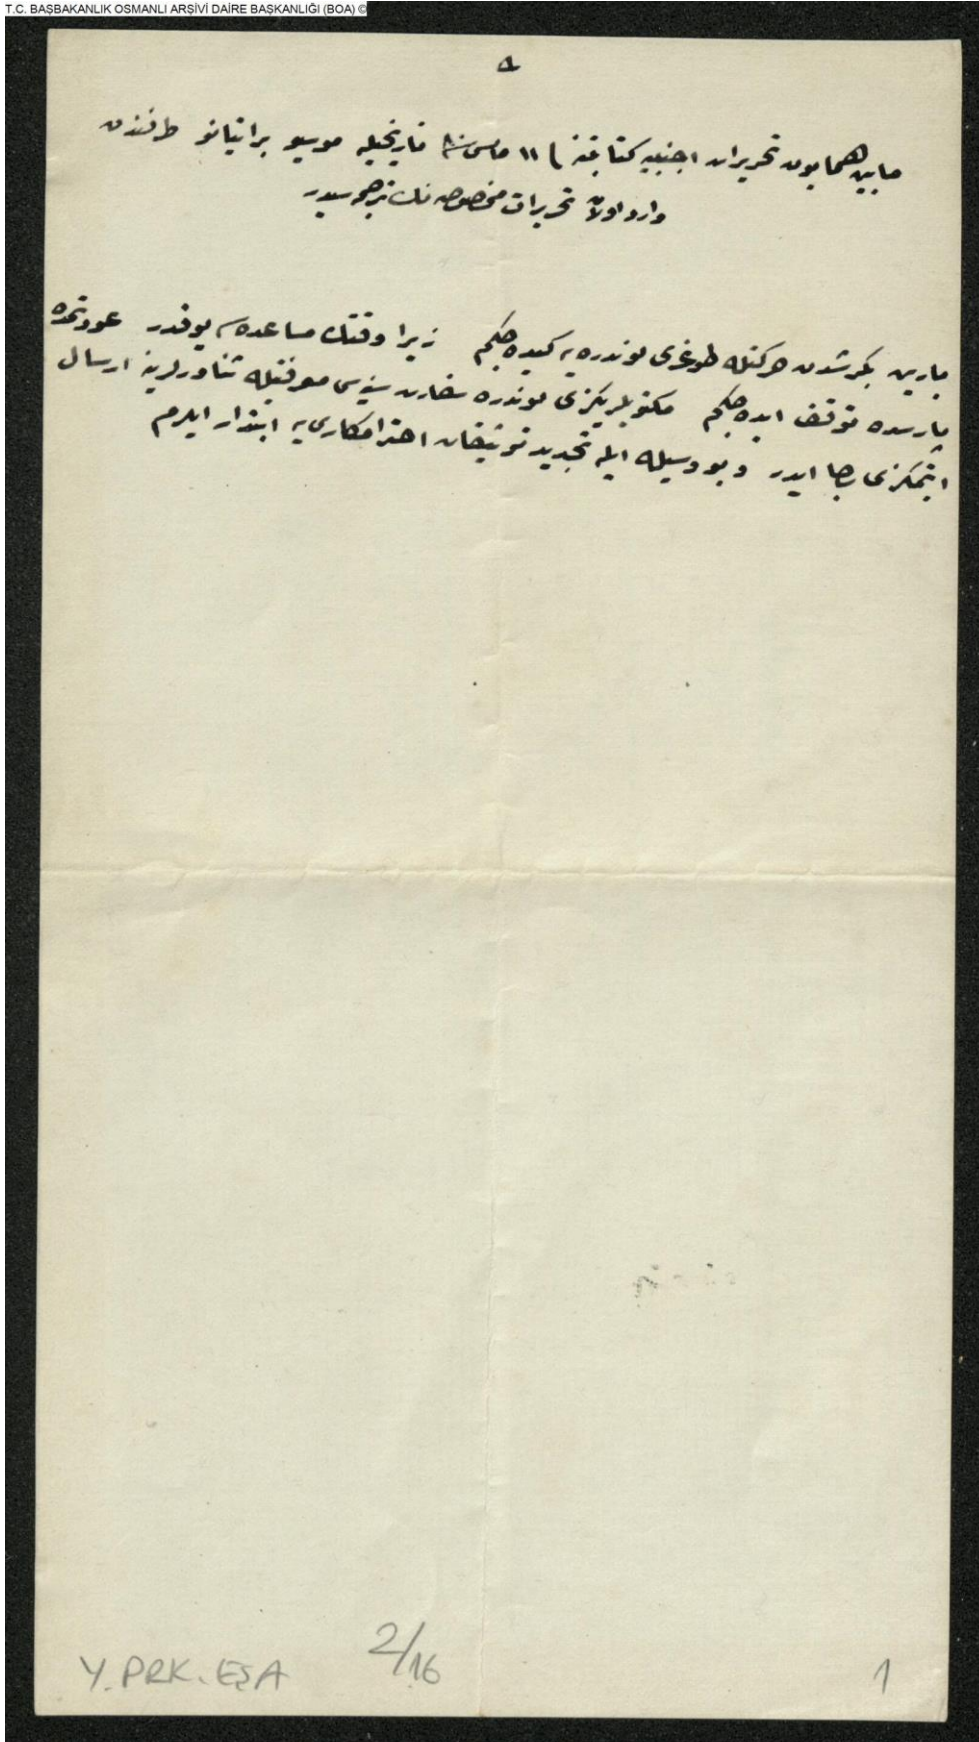 T.C. BAŞBAKANLIK OSMANLI ARŞİVİ DAİRE BAŞKANLIĞI (BOA) ©
مابین همایون تحریرات اجنبیه کتابتنه ١١ مارس تاریخیله موسیو براتیانو طرفندن
وارد اولان تحریرات مخصوصه نک ترجمه سیدر
یارین بکرشدن حرکتله طوغری لوندره یه کیده جکم زیرا وقتک مساعده سی یوقدر عودتمده
پارسده توقف ایده جکم مکتوبلریکزی لوندره سفارت سنیه سی معرفتیله ثناورلرینه ارسال
ایتمکزی رجا ایدر و بو وسیله ایله تجدید توثیقات احترامکاری یه ابتدار ایلرم
Y. PRK. EŞA
2/16
1